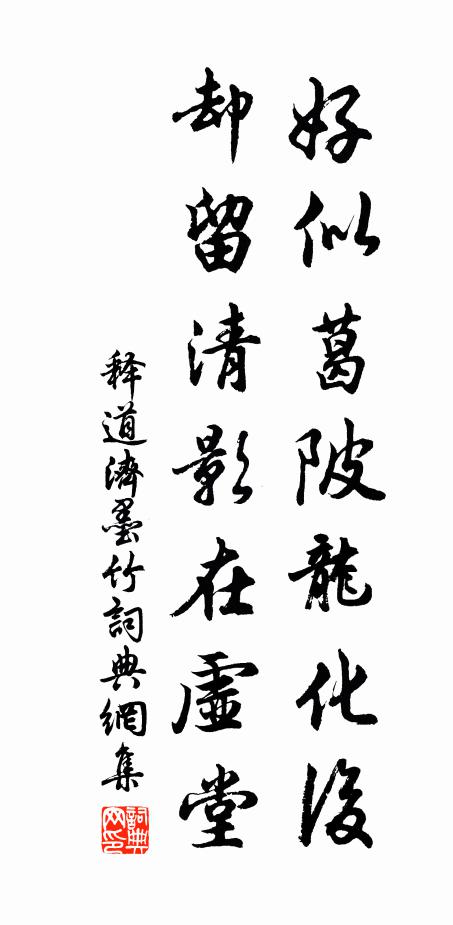 好似葛陂龍化後
却留清影在虛堂
释道濟墨竹詞典網集
詞典網印